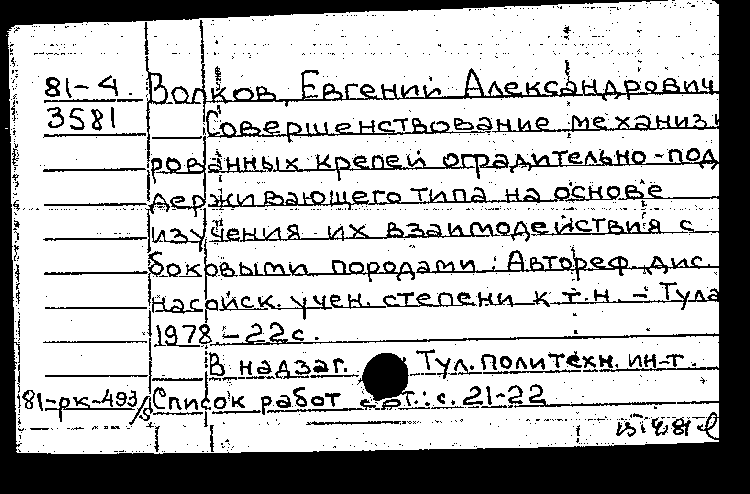 81-4. Волков, Евгений Александрович
3581 Совершенствование механизи
рованных крепей оградительно-под
держивающего типа на основе
изучения их взаимодействия с
боковыми породами: Автореф. дис.
на соиск. учен. степени к.т.н. - Тула
1978. - 22 с.
В надзаг. Тул. политехн. ин-т.
81-рк-493/8 Список работ авт.: с. 21-22